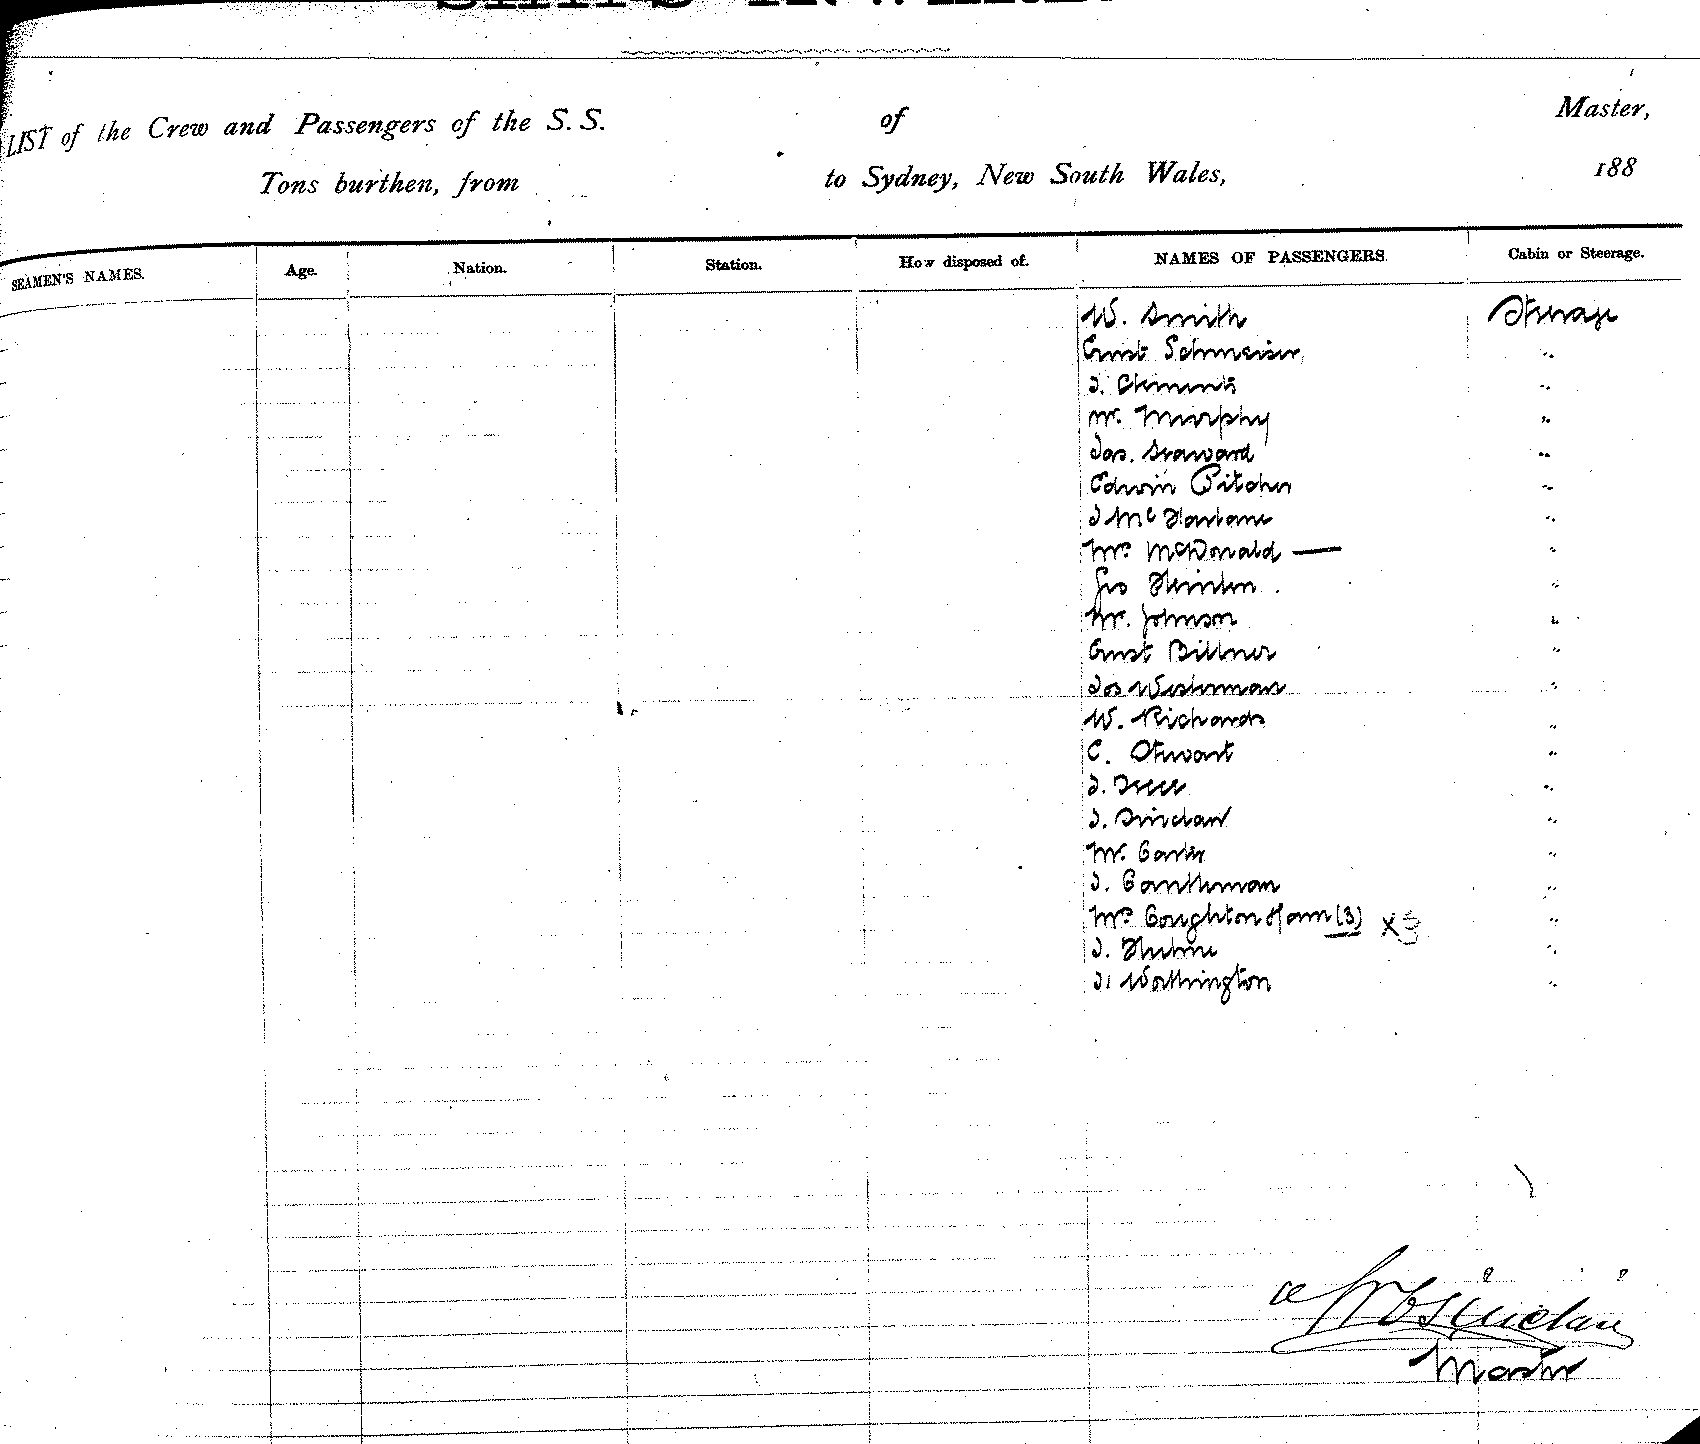 LIST of the Crew and Passengers of the S.S. of Master,
Tons burthen, from to Sydney, New South Wales, 188
SEAMEN'S NAMES. Age. Nation. Station. How disposed of. NAMES OF PASSENGERS Cabin or Steerage.
W. Smith Steerage
Ernst Schmeiser "
J. Clements "
Mr. Murphy "
Jas. Seaward "
Edwin Pitcher "
J McFarlane "
Mrs McDonald — "
Geo "
Mr. Johnson "
Ernst Billner "
Jos Westerman "
W. Richards "
C. Stewart "
J. "
J. Sinclair "
Mr. Carter "
J. "
Mrs Coughton Ham (3) X3 "
J. Hulme "
J. Worthington "
Sinclair
Master